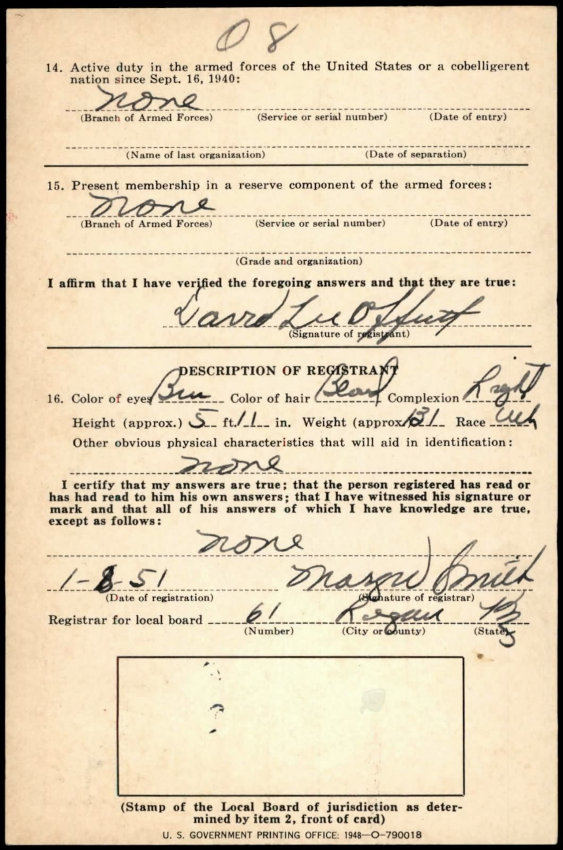 08
14. Active duty in the armed forces of the United States or a cobelligerent
nation since Sept. 16, 1940:
none
(Branch of Armed Forces) (Service or serial number) (Date of entry)
(Name of last organization) (Date of separation)
15. Present membership in a reserve component of the armed forces:
none
(Branch of Armed Forces) (Service or serial number) (Date of entry)
(Grade and organization)
I affirm that I have verified the foregoing answers and that they are true:
David Lee Offutt
(Signature of registrant)
DESCRIPTION OF REGISTRANT
16. Color of eyes Color of hair Complexion
Height (approx.) 5 ft. 11 in. Weight (approx.) 131 Race Wh
Other obvious physical characteristics that will aid in identification:
none
I certify that my answers are true; that the person registered has read or
has had read to him his own answers; that I have witnessed his signature or
mark and that all of his answers of which I have knowledge are true,
except as follows:
none
1-8-51 Smith
(Date of registration) (Signature of registrar)
Registrar for local board 61
(Number) (City or county) (State)
(Stamp of the Local Board of jurisdiction as deter-
mined by item 2, front of card)
U. S. GOVERNMENT PRINTING OFFICE: 1948—O-790018